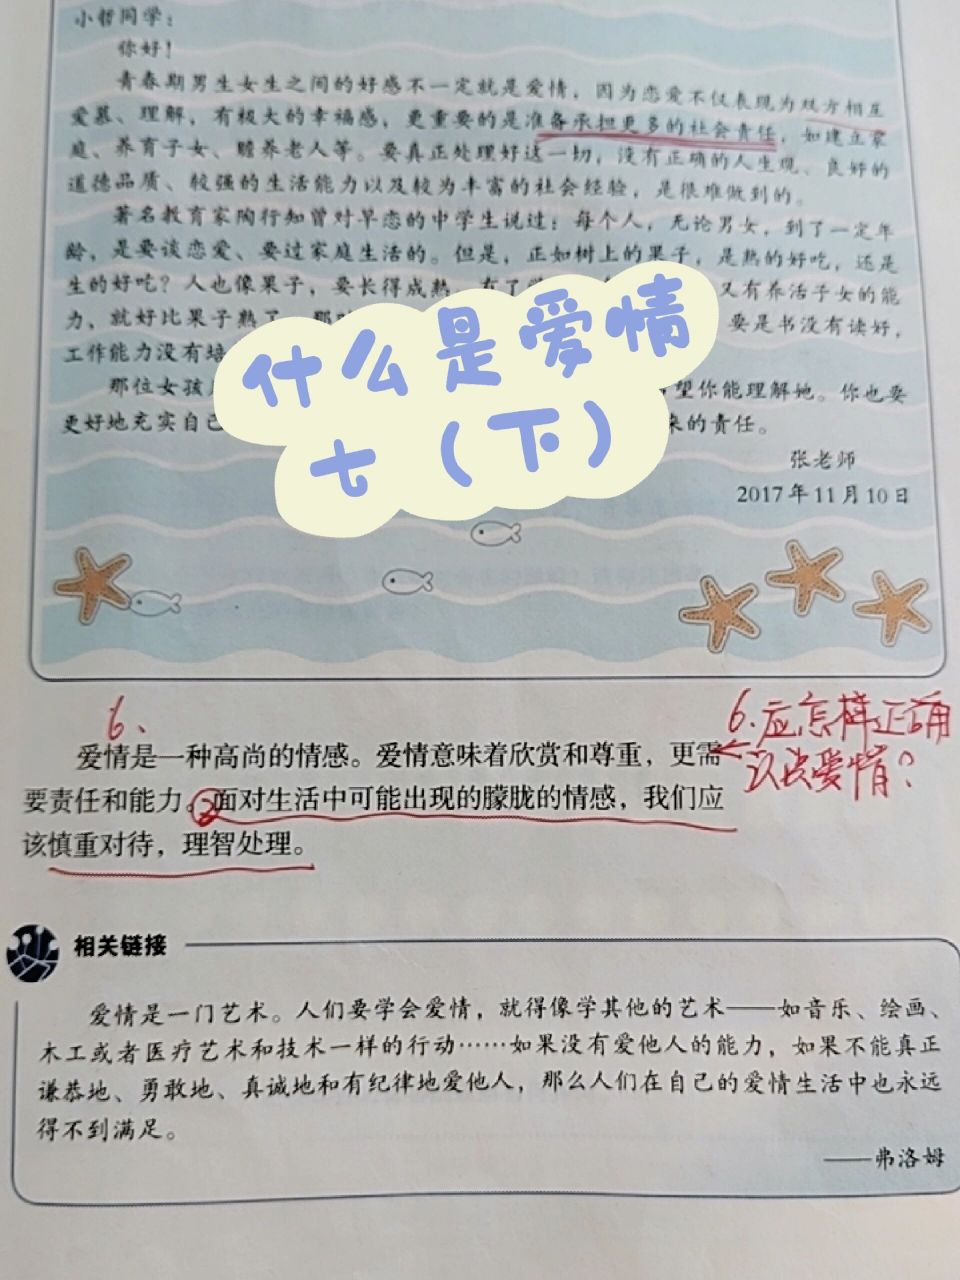 小哲同学：
你好！
青春期男生女生之间的好感不一定就是爱情，因为恋爱不仅表现为双方相互
爱慕、理解，有极大的幸福感，更重要的是准备承担更多的社会责任，如建立家
庭、养育子女、赡养老人等。要真正处理好这一切，没有正确的人生观、良好的
道德品质、较强的生活能力以及较为丰富的社会经验，是很难做到的。
著名教育家陶行知曾对早恋的中学生说过：每个人，无论男女，到了一定年
龄，是要谈恋爱、要过家庭生活的。但是，正如树上的果子，是熟的好吃，还是
生的好吃？人也像果子，要长得成熟，有了 又有养活子女的能
力，就好比果子熟了 要是书没有读好，
工作能力没有培
那位女孩 望你能理解她。你也要
更好地充实自己 来的责任。
什么是爱情
七（下）
张老师
2017年11月10日
6、
6.应怎样正确
认识爱情？
爱情是一种高尚的情感。爱情意味着欣赏和尊重，更需
要责任和能力。②面对生活中可能出现的朦胧的情感，我们应
该慎重对待，理智处理。
相关链接
爱情是一门艺术。人们要学会爱情，就得像学其他的艺术——如音乐、绘画、
木工或者医疗艺术和技术一样的行动……如果没有爱他人的能力，如果不能真正
谦恭地、勇敢地、真诚地和有纪律地爱他人，那么人们在自己的爱情生活中也永远
得不到满足。
——弗洛姆